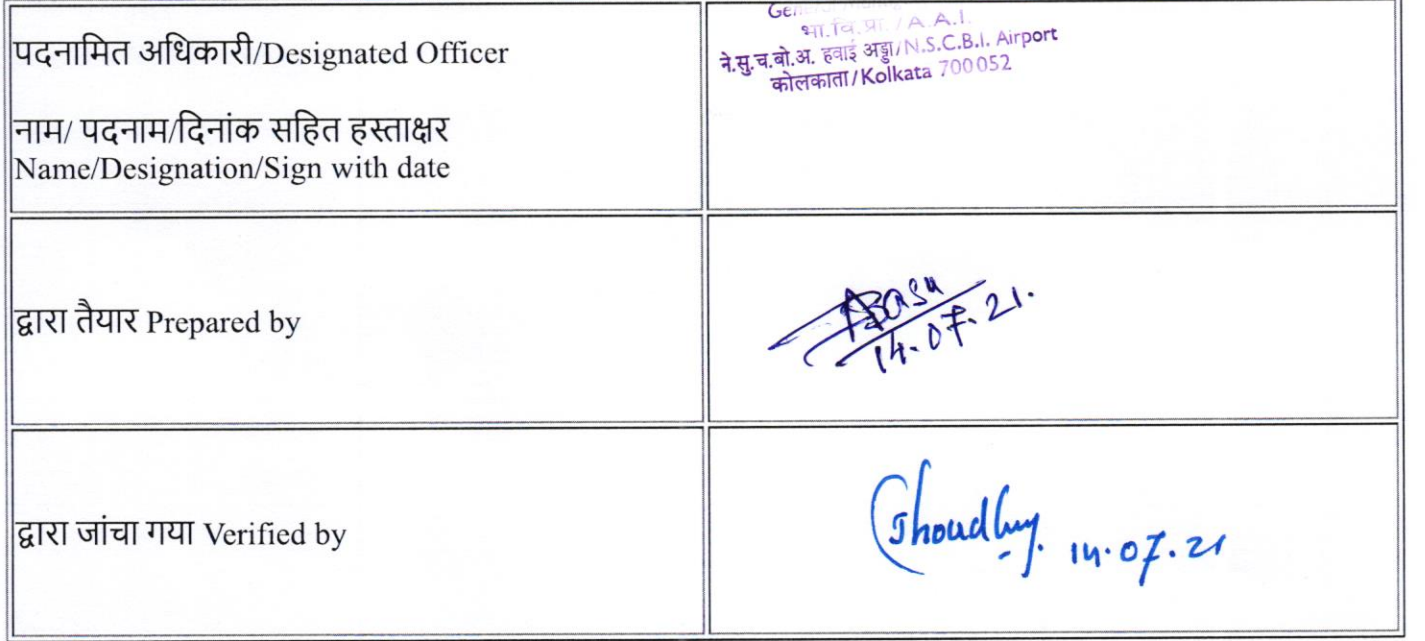 पदनामित अधिकारी/Designated Officer
नाम/ पदनाम/दिनांक सहित हस्ताक्षर
Name/Designation/Sign with date
भा.वि.प्रा. / A.A.I.
ने.सु.च.बो.अ. हवाई अड्डा/N.S.C.B.I. Airport
कोलकाता/Kolkata 700052
द्वारा तैयार Prepared by
Basu
14.07.21.
द्वारा जांचा गया Verified by
Choudhury. 14.07.21